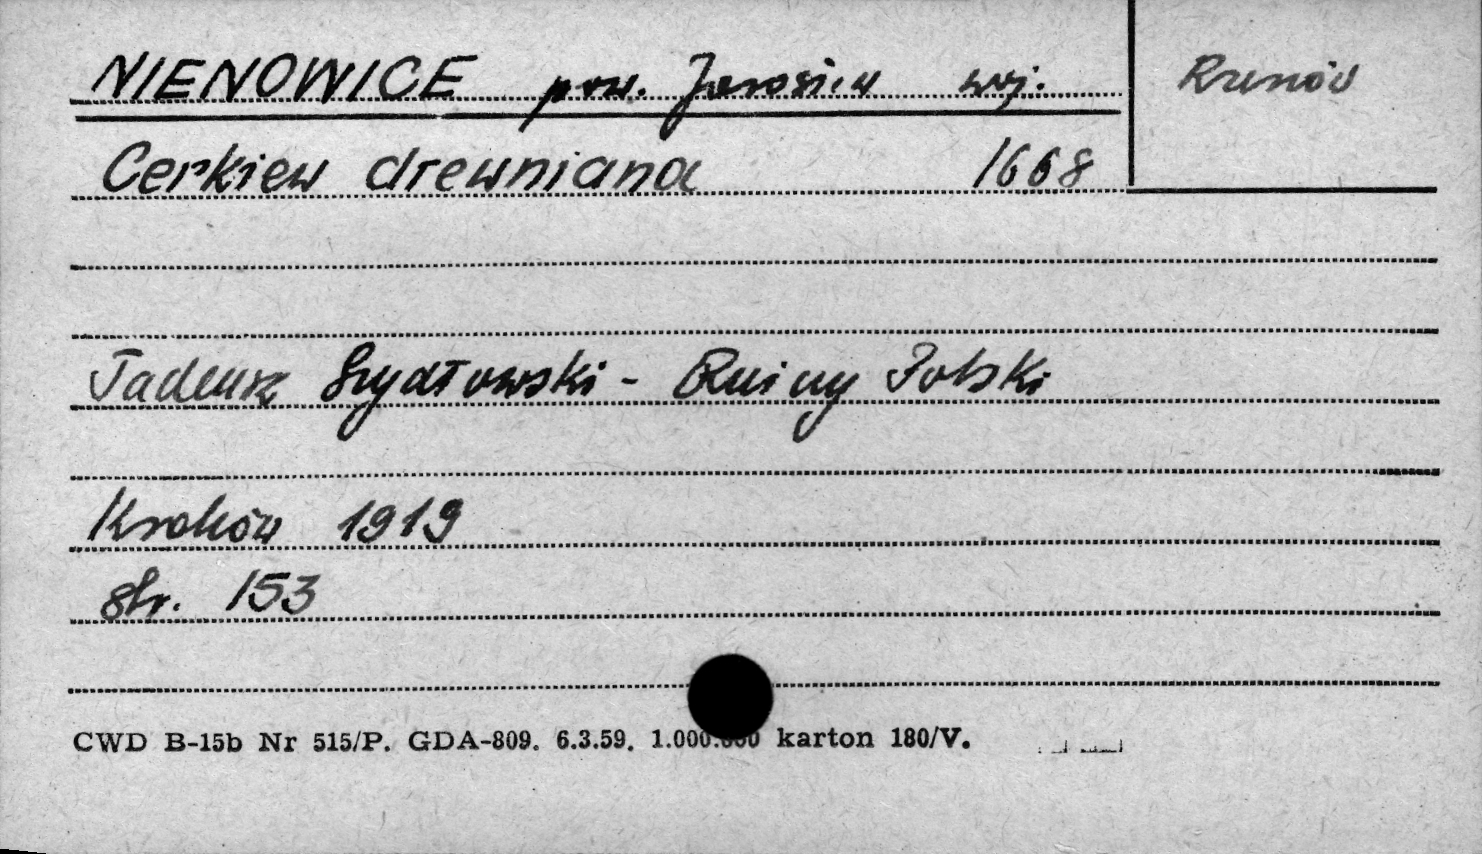 NIENOWICE pow. Jarosław woj. Rzeszów
Cerkiew drewniana 1668
Tadeusz Szydłowski - Ruiny Polski
Kraków 1919
str. 153
CWD B-15b Nr 515/P. GDA-809. 6.3.59. 1.000.000 karton 180/V.